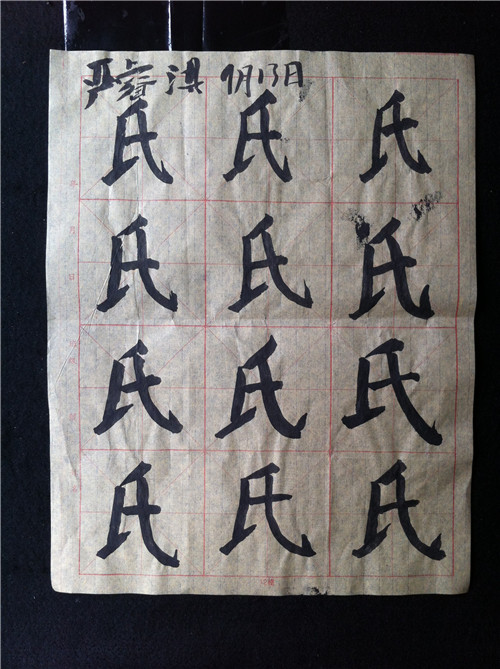 严睿淇 9月13日
氏 氏 氏
氏 氏 氏
氏 氏 氏
氏 氏 氏